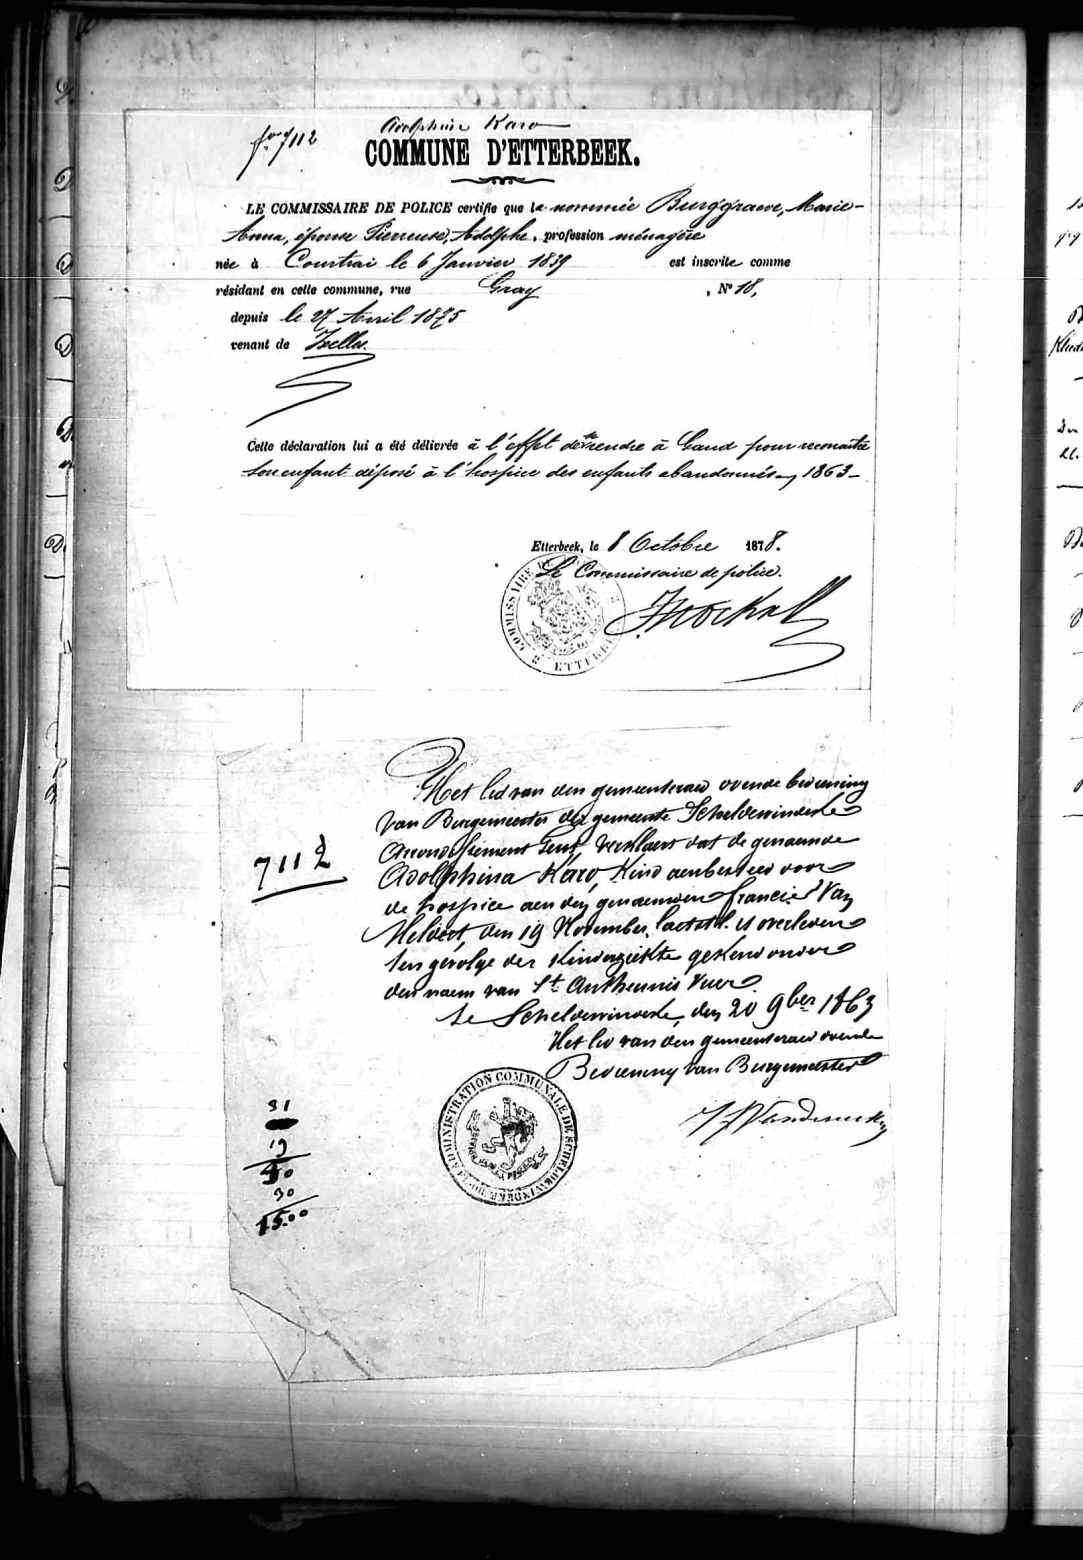 Adolphine Karo
fo 7112
COMMUNE D'ETTERBEEK.
LE COMMISSAIRE DE POLICE certifie que la nommée Burggraeve, Marie-
Anna, épouse Pierreuse, Adolphe, profession ménagère
née à Courtrai le 6 Janvier 1839 est inscrite comme
résidant en cette commune, rue Gray, No 18,
depuis le 27 Avril 1875
venant de Ixelles.
Cette déclaration lui a été délivrée à l'effet de se rendre à Gand pour reconaitre
son enfant déposé à l'hospice des enfants abandonnés en 1863-
Etterbeek, le 8 Octobre 1878.
Le Commissaire de police.
COMMISSAIRE DE POLICE
ETTERBEEK
Het lid van den gemeenteraed ovende bediening
van Burgemeester der gemeente Scheldewindeke
Arrondissement Gent, verklaert dat de genaemde
Adolphina Karo, Kind aenbesteed voor
de hospice aen den genaemden Francies Van
Meldert, den 19 November laetstl. is overleden
ten gevolge der Kinderziekte gekend onder
den naem van St. Antheunis vuer.
7112
te Scheldewindeke, den 20 9ber 1863
Het lid van den gemeenteraed ovende
Bediening van Burgemeester
ADMINISTRATION COMMUNALE DE SCHELDEWINDEKE
31
19
50
30
15.00